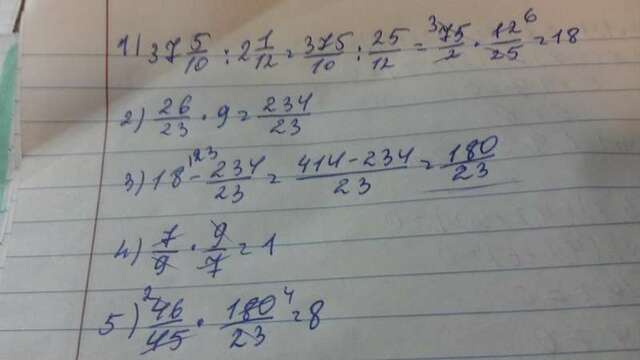 1) 37 5/10 : 2 1/12 = 375/10 : 25/12 = ³75/2 · 12⁶/25 = 18
2) 26/23 · 9 = 234/23
3) 18 ¹²³ - 234/23 = 414-234/23 = 180/23
4) 7/9 · 9/7 = 1
5) ²46/45 · 180⁴/23 = 8